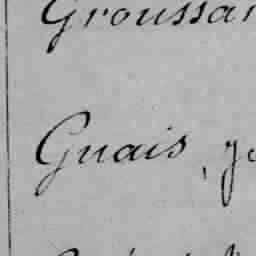 Groussar
Guais, ge